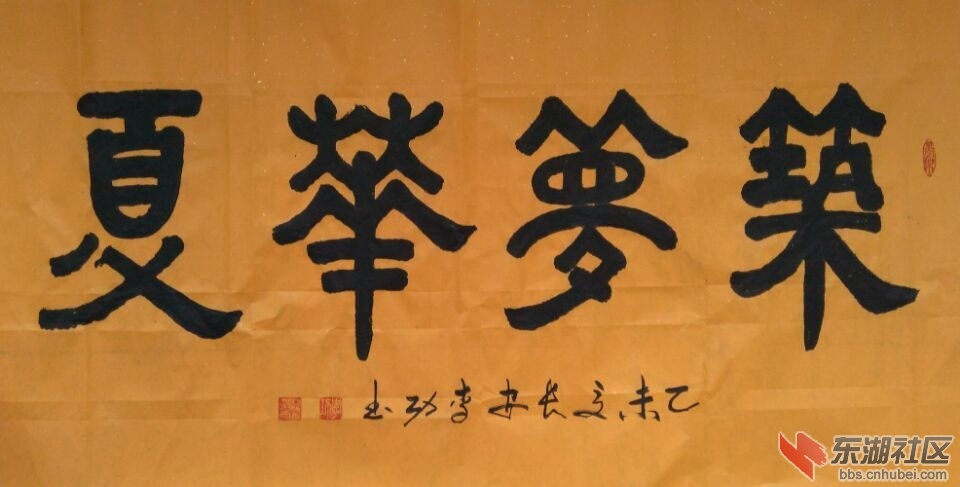 築夢華夏
乙未夏长安李书
东湖社区
bbs.cnhubei.com